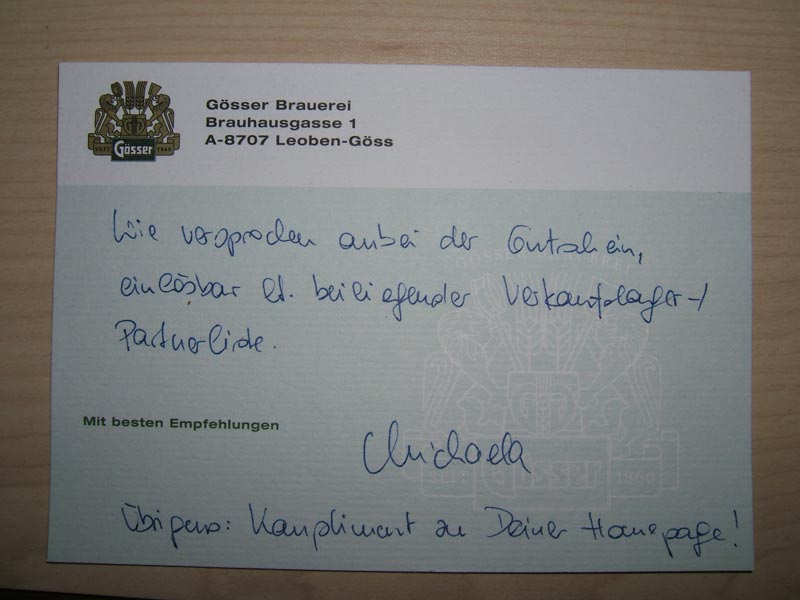 Gösser Brauerei
Brauhausgasse 1
A-8707 Leoben-Göss
Gösser
SEIT 1860
Wie versprochen anbei der Gutschein,
einlösbar lt. beiliegender Verkaufslager-/
Partnerliste.
Mit besten Empfehlungen
Michaela
Gösser
SEIT 1860
Übrigens: Kompliment zu Deiner Homepage!